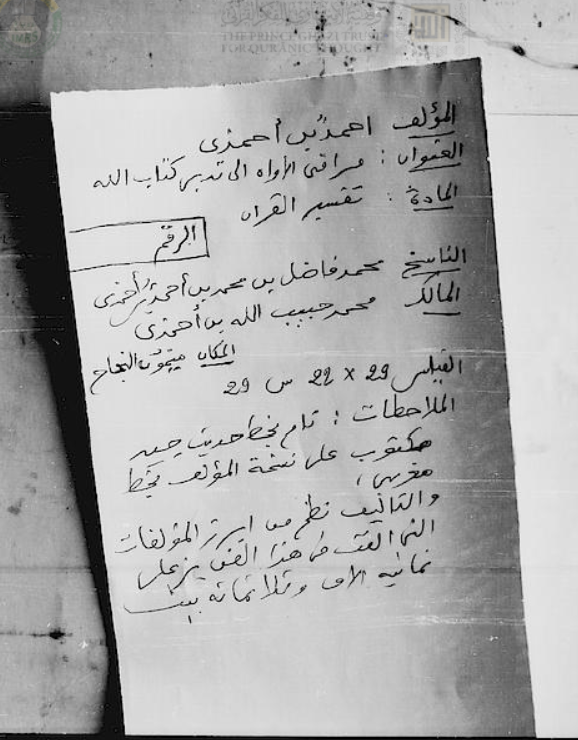 THE PRINCE GHAZI TRUST
FOR QURANIC THOUGHT
المؤلف احمد بن أحمذى
العنوان : مراقى الأواه الى تدبر كتاب الله
المادة : تفسير القران
الرقم
الناسخ محمد فاضل بن محمد بن أحمد بن أحمذى
المالك محمد حبيب الله بن أحمذى
المكان النجاح
القياس 29 × 22 س 29
الملاحظات : تام بخط حديث جيد
مكتوب على نسخة المؤلف بخط
مغربى ،
والتاليف نظم من ابرز المؤلفات
التى الفت فى هذا الفن يزيد على
ثمانيه الاف وثلاثمائة بيت